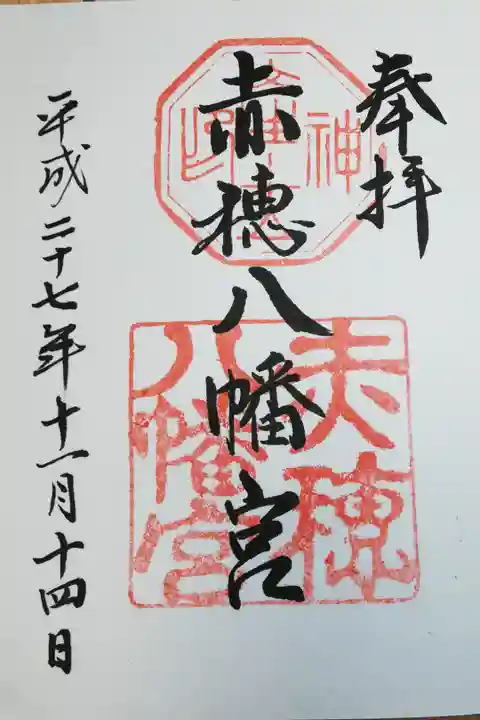 奉拝
赤穂八幡宮
平成二十七年十一月十四日
赤穂
八幡宮
神